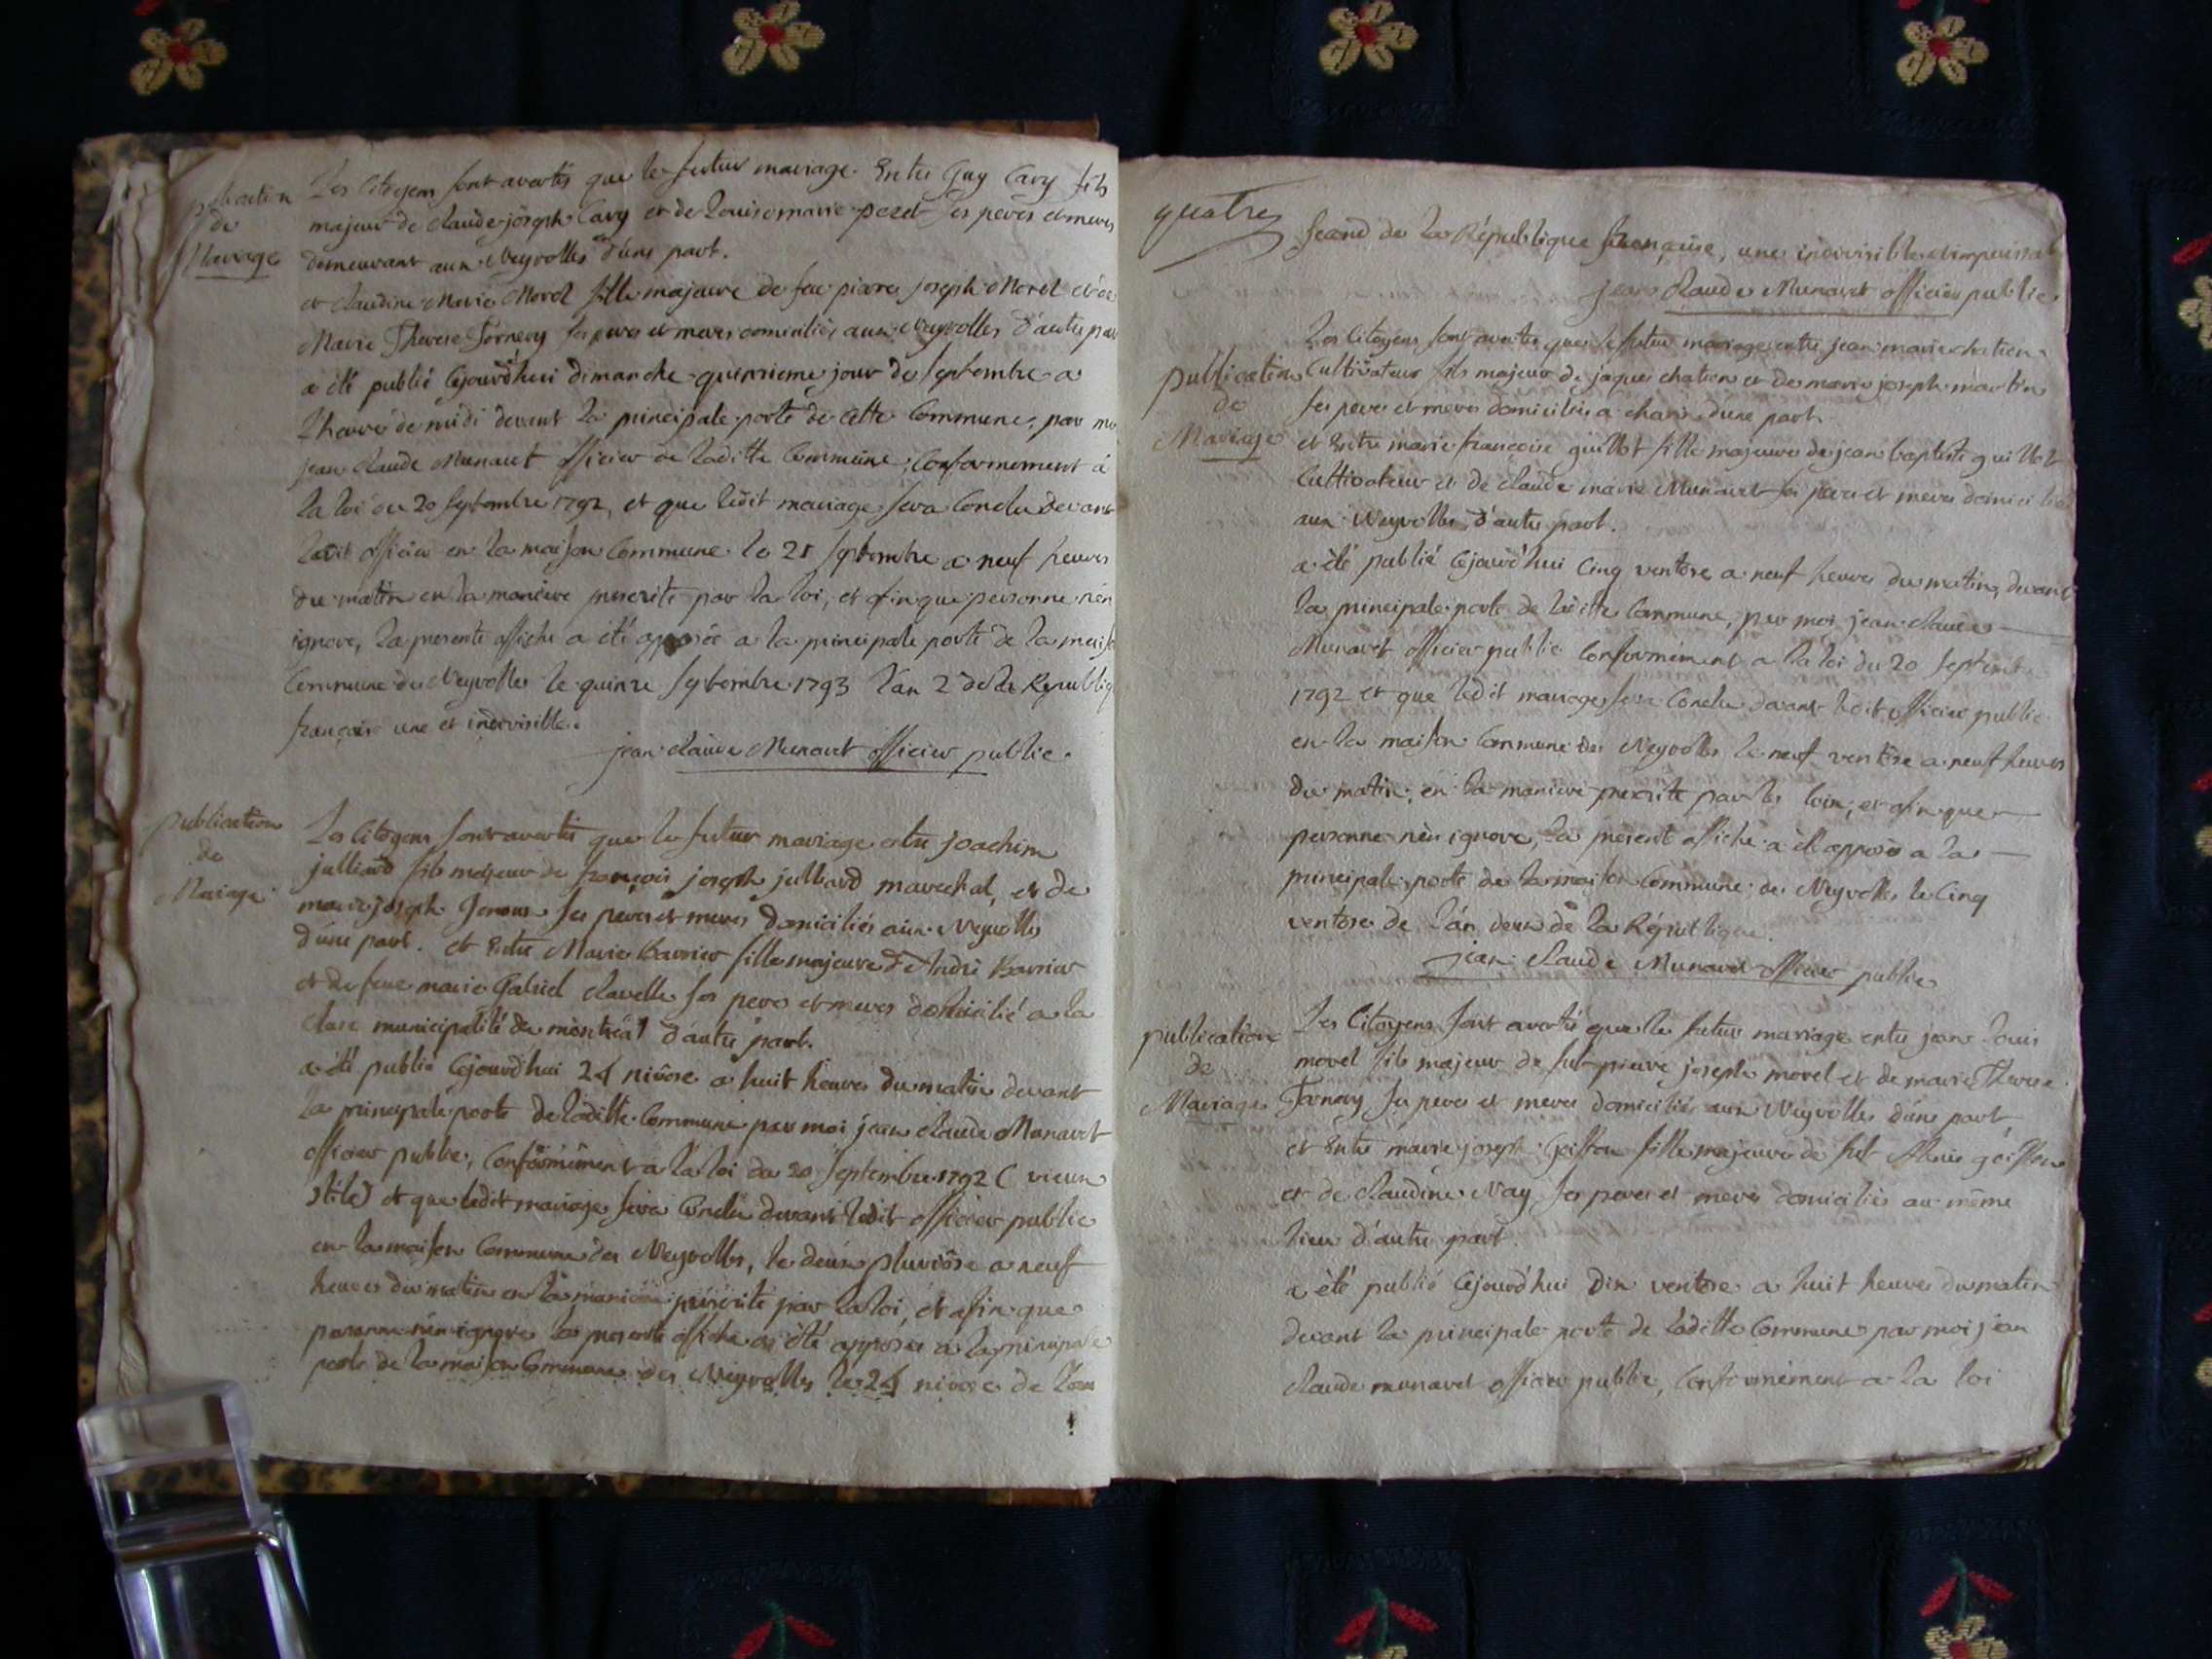 publication
de
Mariage
Les Citoyens sont avertis que le futur mariage Entre Guy Cary fils
majeur de claude joseph Cary et de Louise marie pezet ses peres et meres
demeurant aux Neyrolles d'une part.
et claudine Marie Morel fille majeure de feu pierre joseph Morel et de
Marie Therese Tornery ses peres et meres domiciliés aux Neyrolles d'autre par
a été publié Cejourd'hui dimanche quinzieme jour de septembre a
l'heure de midi devant la principale porte de Cette Commune, par mo
jean claude Munaret officier de laditte Commune, Conformement à
la loi du 20 septembre 1792, et que ledit mariage sera Conclu devant
ledit officier en la maison Commune le 21 septembre a neuf heures
du matin en la maniere prescrite par la loi, et afin que personne n'en
ignore, la presente affiche a été apposée a la principale porte de la mais
Commune des Neyrolles le quinze septembre 1793 l'an 2 de la Republiq
françoise une et indivisible.
jean claude Munaret officier public.
publication
de
Mariage
Les Citoyens sont avertis que le futur mariage entre joachim
julliard fils majeur de françois joseph julliard marechal, et de
marie joseph ses peres et meres domiciliés aux Neyrolles
d'une part. et Entre Marie Barrier fille majeure d'André Barrier
et de feue marie Gabriel clavelle ses peres et meres domicilié a la
cluse municipalité de montréal d'autre part.
a été publié Cejourd'hui 24 nivôse a huit heures du matin devant
la principale porte de laditte Commune par moi jean claude Munaret
officier public, Conformément a la loi du 20 septembre 1792 (vieux
stile) et que ledit mariage sera Conclu devant ledit officier public
en la maison Commune des Neyrolles, le deux pluviôse a neuf
heures du matin en la maniere prescrite par la loi, et afin que
personne n'en ignore la presente affiche a été apposée a la principale
porte de la maison Commune des Neyrolles le 24 nivose de l'an
quatre
second de la République françoise, une indivisible et imperissab
jean claude Munaret officier public
publication
de
Mariage
Les Citoyens sont avertis que le futur mariage entre jean marie chatien
Cultivateur fils majeur de jaques chatien et de marie joseph martin
ses peres et meres domiciliés a charix d'une part.
et Entre marie francoise guillot fille majeure de jean baptiste guillot
Cultivateur et de claude marie Munaret ses peres et meres domicilies
aux Neyrolles d'autre part.
a été publié Cejourd'hui Cinq ventose a neuf heures du matin, devant
la principale porte de laditte Commune, par moi jean claude
Munaret officier public Conformément a la loi du 20 septembre
1792 et que ledit mariage sera Conclu devant ledit officier public
en la maison Commune des Neyrolles le neuf ventôse a neuf heures
du matin, en la maniere prescrite par les loix, et afin que
personne n'en ignore, la présent affiche a été apposée a la
principale porte de la maison Commune des Neyrolles le Cinq
ventose de l'an deux de la République.
jean claude Munaret officier public
publication
de
Mariage
Les Citoyens sont avertis que le futur mariage entre jean Louis
morel fils majeur de fut pierre joseph morel et de marie Therese
Tornery ses peres et meres domiciliés aux Neyrolles d'une part,
et Entre marie joseph goiffon fille majeure de fut goiffon
et de claudine Nay ses peres et meres domiciliés au même
lieu d'autre part.
a été publié Cejourd'hui Dix ventose a huit heures du matin
devant la principale porte de laditte Commune par moi jean
claude munaret officier public, Conformément a la loi